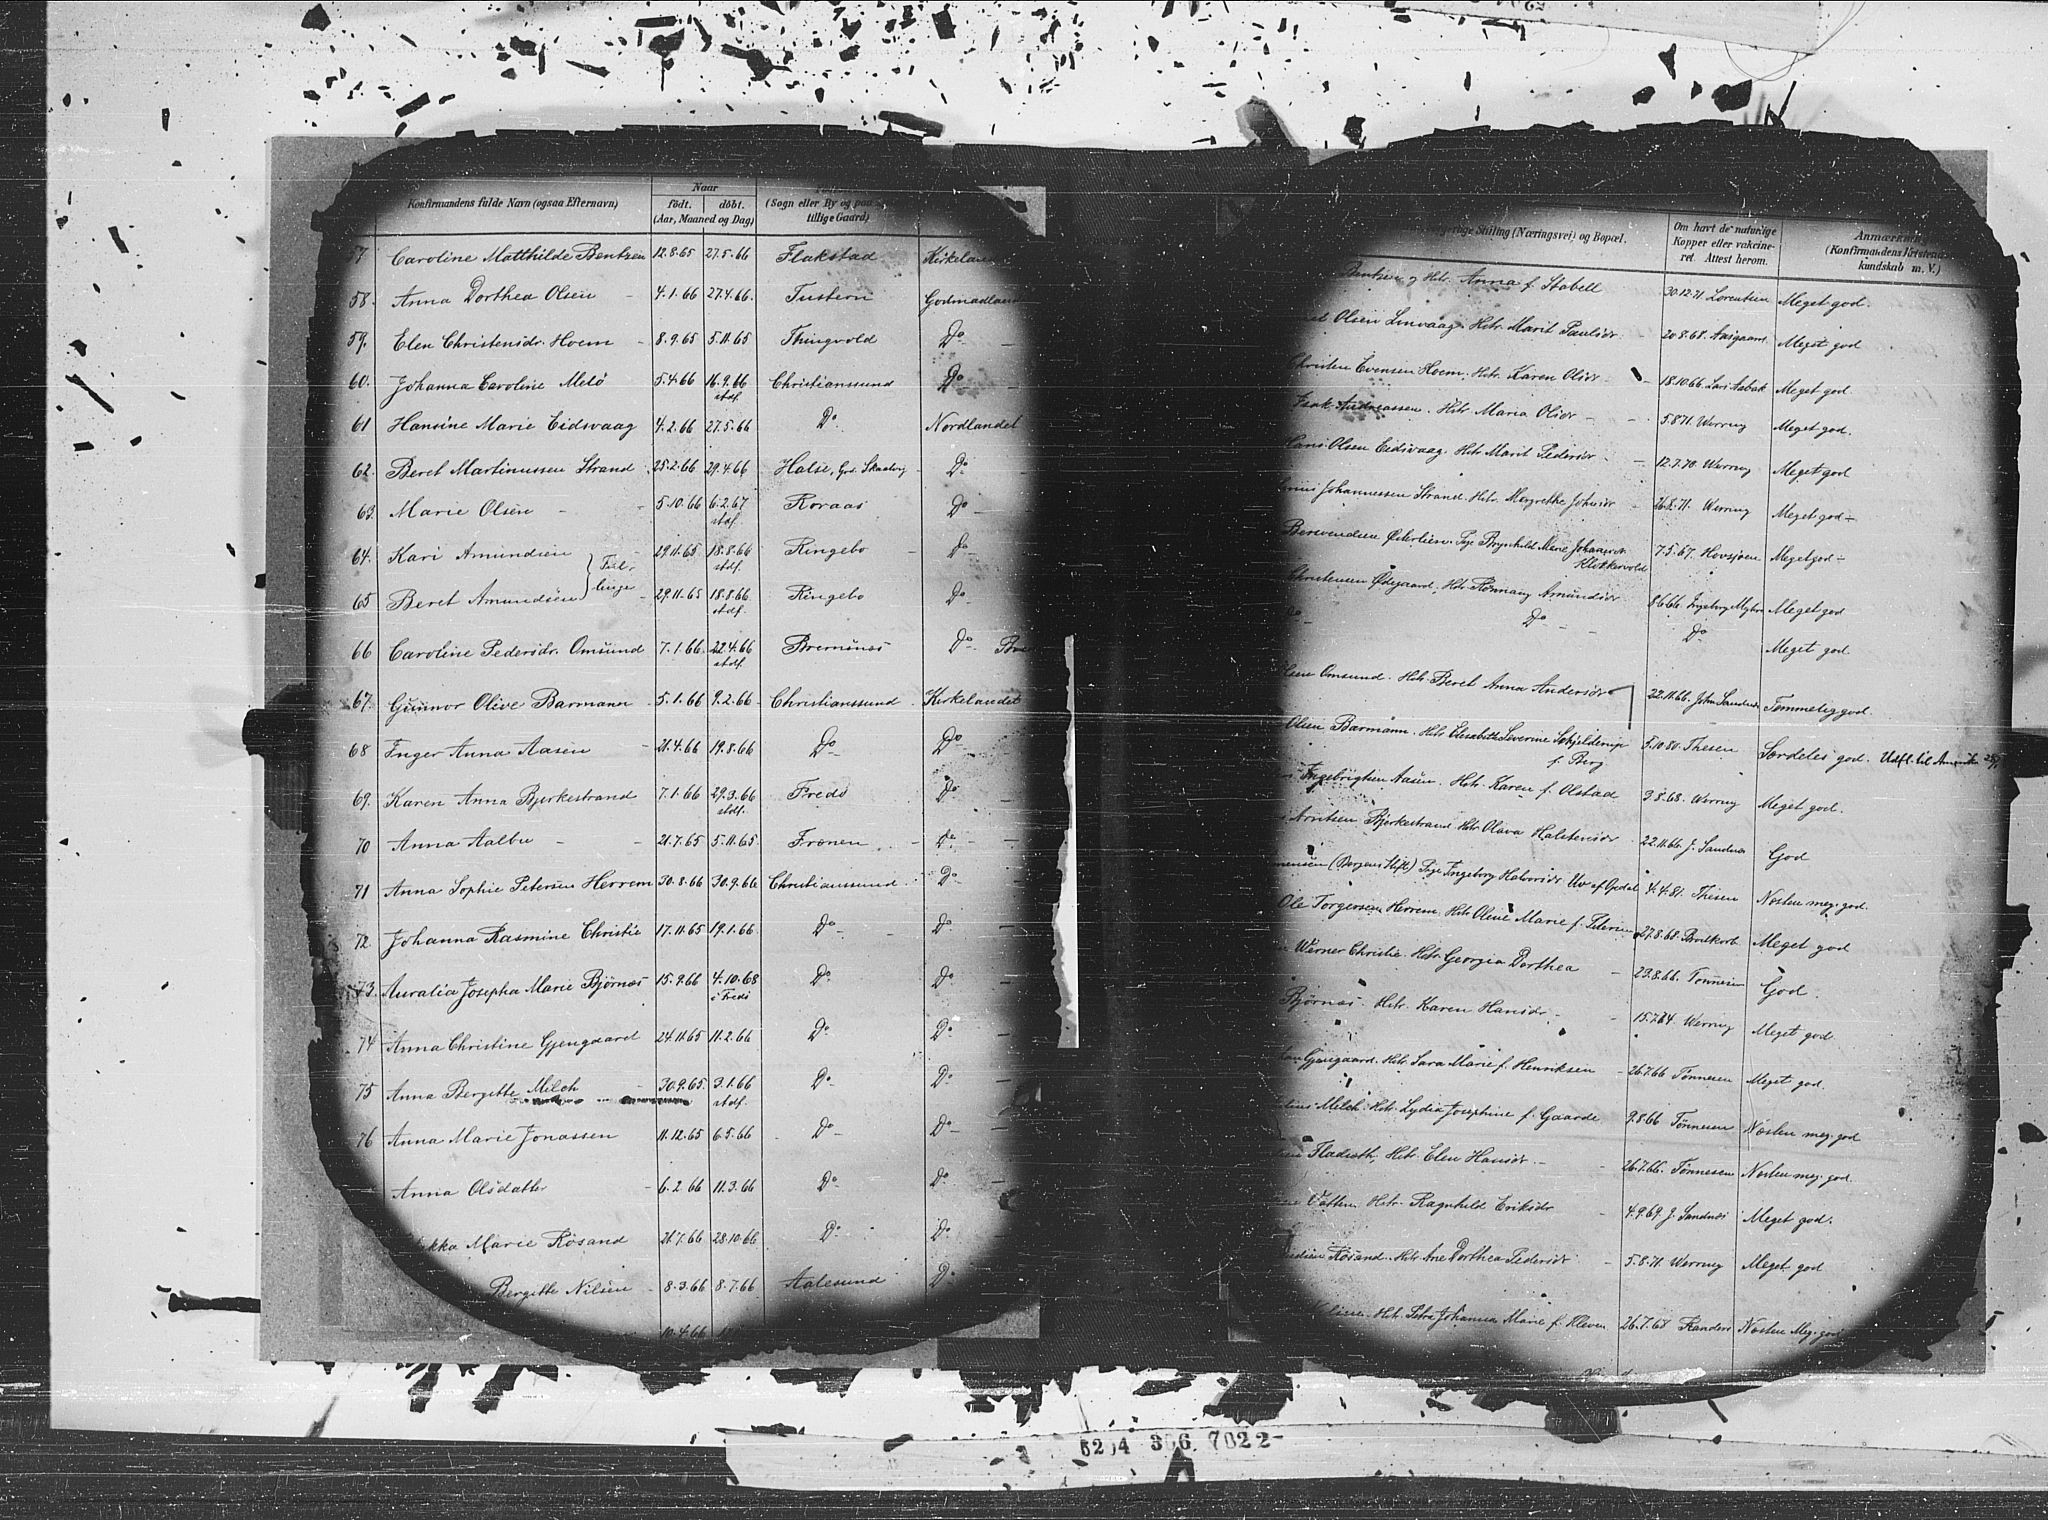 Naar
Konfirmandens fulde Navn (ogsaa Efternavn)
født. døbt.
(Aar, Maaned og Dag)
(Sogn eller By og paa
tillige Gaard)
57 Caroline Matthilde Bentzen 12.8.65 27.5.66 Flakstad Kirkeland
58. Anna Dorthea Olsen 4.1.66 27.4.66. Tustern Godmadland
59. Elen Christensdr. Hoem 8.9.65 5.11.65 Thingvold Do
60. Johanna Caroline Melö 5.4.66 16.9.66 Christianssund Do
stdf.
61 Hansine Marie Eidsvaag 4.2.66 27.5.66 Do Nordlandet
62. Beret Martinussen Strand 25.2.66 29.4.66 Halse, Grd. Do
63. Marie Olsen 5.10.66 6.2.67 Roraas Do
stdf.
64. Kari Amundsen 29.11.65 18.8.66 Ringebo Do
stdf.
Tvil-
linge
65 Beret Amundsen 29.11.65 18.8.66 Ringebo Do
stdf.
66 Caroline Pedersdr. Omsund 7.1.66 22.4.66 Bremsnæs Do
stdf.
67. Gunnor Olive Barmann 5.1.66 9.2.66 Christianssund Kirkelandet
68 Inger Anna Aasen 21.4.66 19.8.66 Do Do
69. Karen Anna Bjerkestrand 7.1.66 29.3.66 Fredö Do
stdf.
70 Anna Aalbu 21.7.65 5.11.65 Frænen Do
71 Anna Sophie Petersen Herrem 30.8.66 30.9.66 Christianssund Do
72. Johanna Rasmine Christie 17.11.65 19.1.66 Do Do
73. Auralia Josepha Marie Bjørnæs 15.9.66 4.10.68 Do Do
i Fredö
74 Anna Christine Gjengaard 24.11.65 11.2.66 Do Do
75 Anna Bergitte Milch 30.9.65 3.1.66 Do Do
stdf.
76 Anna Marie Jonassen 11.12.65 6.5.66 Do Do
Anna Olsdatter 6.2.66 11.3.66 Do Do
Marie Røsand 21.7.66 28.10.66 Do Do
Bergitte Nilsen 8.3.66 8.7.66 Aalesund Do
10.4.66
Stilling (Næringsvei) og Bopæl.
Om havt de naturlige
Kopper eller vakcine-
ret. Attest herom.
Anmærkning
(Konfirmandens Kristend
kundskab m. V.)
Bentzen og Hstr. Anna f. Stabell 30.12.71 Lorentzen Meget god.
Olsen Linvaag. Hstr. Marit Paulsdr. 20.8.68. Aasgaard Meget god
Christen Evensen Hoem. Hstr. Karen Olsdr 18.10.66 Lars Aabak Meget god.
Isak Andreassen. Hstr. Maria Olsdr 5.8.71. Werring Meget god.
Hans Olsen Eidsvaag. Hstr. Marit Pedersdr 12.7.70. Werring Meget god
Johannessen Strand. Hstr. Margrethe Johnsdr 26.8.71. Werring Meget god
Berevendsen Østerlien. Pige Brynhild Marie Johannsdr. 7.5.67. Hovsjøen Meget god
Klokkervold
Christensen Ødegaard, Hstr. Rønnaug Amundsdr 8.6.66. Ingeborg Myhre Meget god
Do Do Meget god
Omsund. Hstr. Beret Anna Andersdr 22.11.66. John Sandnes Temmelig god.
Olsen Barmann. Hstr. Elisabeth Severine Schjelderup 5.10.80. Thesen Særdeles god. Udfl. til Amerika
f. Berg
Ingebrigtsen Aasen. Hstr. Karen f. Olstad 3.8.68. Werring Meget god.
Arntsen Bjerkestrand Hstr. Olava Halstensdr 22.11.66. J. Sandnes God
(Bergens Stift) Pige Ingeborg Halvorsdr. Uv. af Opdal 4.4.81. Thesen Næsten meg. god.
Ole Torgersen Herrem. Hstr. Oline Marie f. Petersen 27.8.68. Brodtkorb Meget god
Werner Christie. Hstr. Georgia Dorthea 23.8.66. Tønnesen God.
Bjørnæs. Hstr. Karen Hansdr. 15.7.64. Werring Meget god
Gjengaard. Hstr. Sara Marie f. Henriksen 26.7.66 Tønnesen Meget god.
Milch. Hstr. Lydia Josephine f. Gaarde 9.8.66 Tønnesen Næsten meg. god
Fladseth, Hstr. Elen Hansdr. 26.7.66. Tønnesen Næsten meg. god.
Vatten Hstr. Ragnhild Eriksdr 4.9.69. J. Sandnes Meget god.
Røsand. Hstr. Ane Dorthea Pedersdr 5.8.71. Werring Meget god
Nilsen. Hstr. Petra Johanna Marie f. Kleven 26.7.68 Randers Næsten Meg. god
5294 306 7022
A